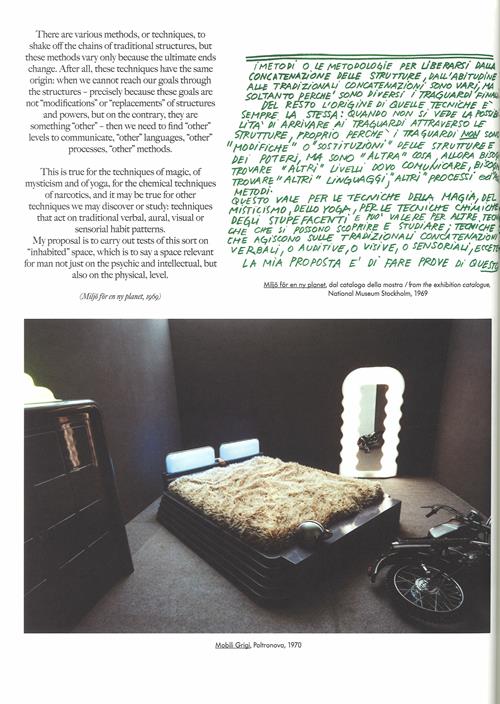 There are various methods, or techniques, to
shake off the chains of traditional structures, but
these methods vary only because the ultimate ends
change. After all, these techniques have the same
origin: when we cannot reach our goals through
the structures – precisely because these goals are
not “modifications” or “replacements” of structures
and powers, but on the contrary, they are
something “other” – then we need to find “other”
levels to communicate, “other” languages, “other”
processes, “other” methods.
This is true for the techniques of magic, of
mysticism and of yoga, for the chemical techniques
of narcotics, and it may be true for other
techniques we may discover or study: techniques
that act on traditional verbal, aural, visual or
sensorial habit patterns.
My proposal is to carry out tests of this sort on
“inhabited” space, which is to say a space relevant
for man not just on the psychic and intellectual, but
also on the physical, level.
(Miljö för en ny planet, 1969)
I METODI O LE METODOLOGIE PER LIBERARSI DALLA
CONCATENAZIONE DELLE STRUTTURE, DALL'ABITUDINE
ALLE TRADIZIONALI CONCATENAZIONI SONO VARI, MA
SOLTANTO PERCHE' SONO DIVERSI I TRAGUARDI FINALI
DEL RESTO L'ORIGINE DI QUELLE TECNICHE E'
SEMPRE LA STESSA: QUANDO NON SI VEDE LA POSSIBI
LITA' DI ARRIVARE AI TRAGUARDI ATTRAVERSO LE
STRUTTURE, PROPRIO PERCHE' I TRAGUARDI NON SONO
"MODIFICHE" O "SOSTITUZIONI" DELLE STRUTTURE E
DEI POTERI, MA SONO "ALTRA" COSA, ALLORA
TROVARE "ALTRI" LIVELLI DOVE COMUNICARE,
TROVARE "ALTRI" LINGUAGGI, "ALTRI" PROCESSI
METODI.
QUESTO VALE PER LE TECNICHE DELLA MAGIA, DEL
MISTICISMO, DELLO YOGA, PER LE TECNICHE CHIMICHE
DEGLI STUPEFACENTI E PUO' VALERE PER ALTRE
CHE SI POSSONO SCOPRIRE E STUDIARE; TECNICHE
CHE AGISCONO SULLE TRADIZIONALI CONCATENAZIONI
VERBALI, O AUDITIVE, O VISIVE, O SENSORIALI,
LA MIA PROPOSTA E' DI FARE PROVE DI QUESTO
Miljö för en ny planet, dal catalogo della mostra / from the exhibition catalogue,
National Museum Stockholm, 1969
Mobili Grigi, Poltronova, 1970